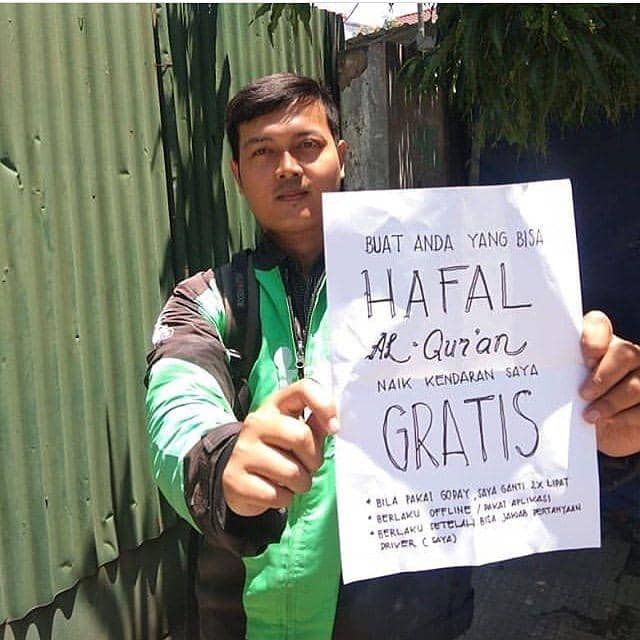 BUAT ANDA YANG BISA
HAFAL
AL-Qur'an
NAIK KENDARAN SAYA
GRATIS
* BILA PAKAI GOPAY, SAYA GANTI 2X LIPAT
* BERLAKU OFFLINE / PAKAI APLIKASI
* BERLAKU SETELAH BISA JAWAB PERTANYAAN
DRIVER ( SAYA)